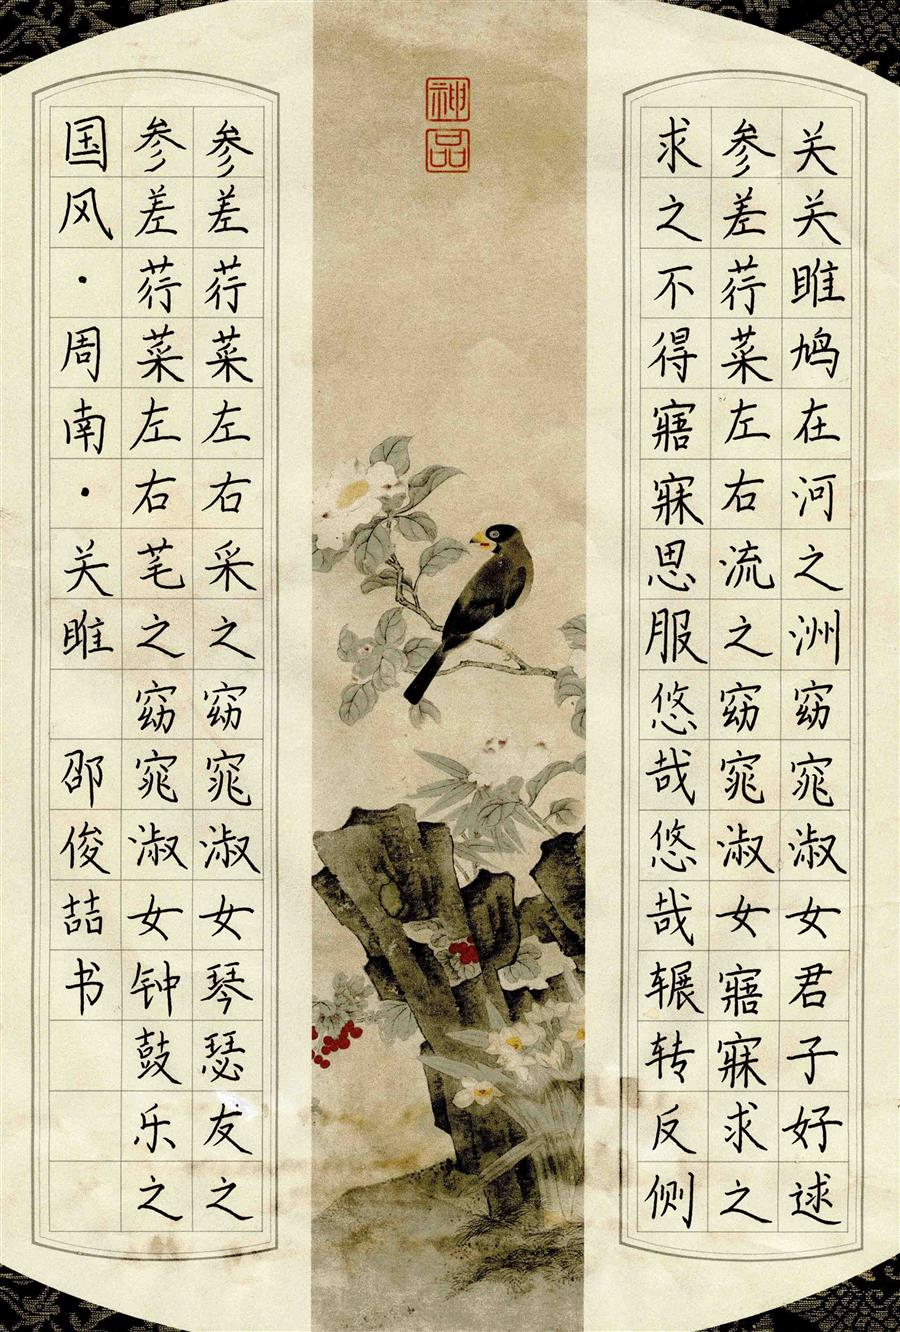 关关雎鸠在河之洲窈窕淑女君子好逑
参差荇菜左右流之窈窕淑女寤寐求之
求之不得寤寐思服悠哉悠哉辗转反侧
神品
参差荇菜左右采之窈窕淑女琴瑟友之
参差荇菜左右芼之窈窕淑女钟鼓乐之
国风·周南·关雎 邵俊喆书